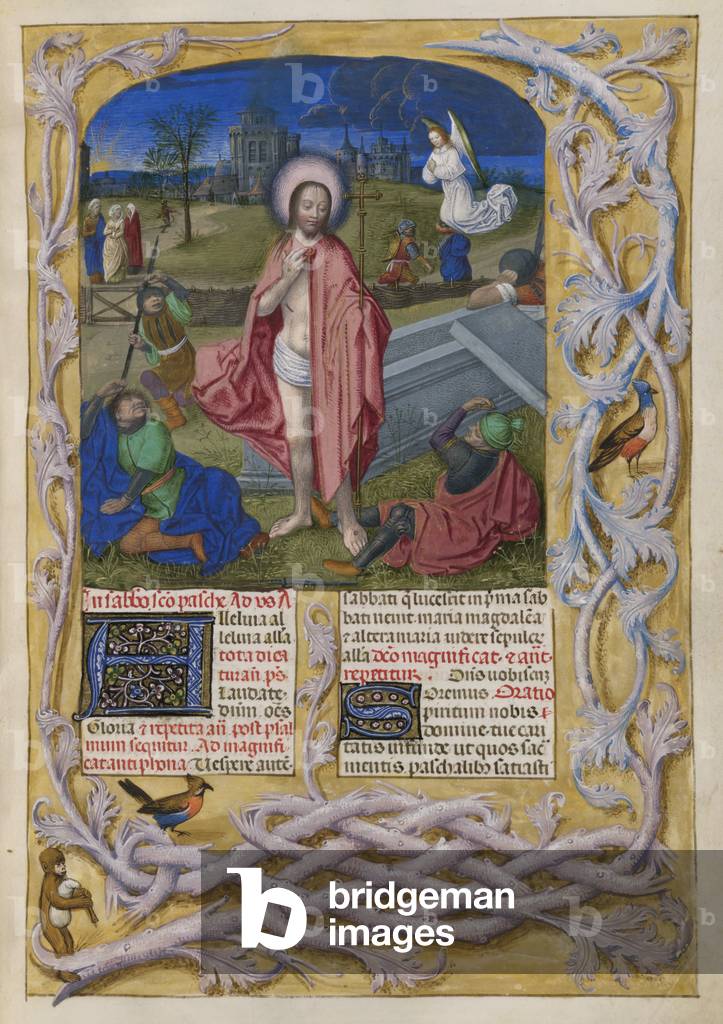 In sabbo sco pasche Ad vs A
lleluia al
leluia alla
tota dica
tur añ ps
Laudate
dnm oēs
Gloria & repetita añ post psal
mum sequitur Ad magnifi
cat antiphona Vespere autē
sabbati q lucescit in pma sab
bati venit maria magdalēa
& altera maria videre sepulcr
alla dco magnificat & añt
repetitur. Dns vobiscuz
Oremus Oratio
Spiritum nobis
domine tue cari
tatis infunde ut quos sac
mentis paschalibz satiasti
b bridgeman
images